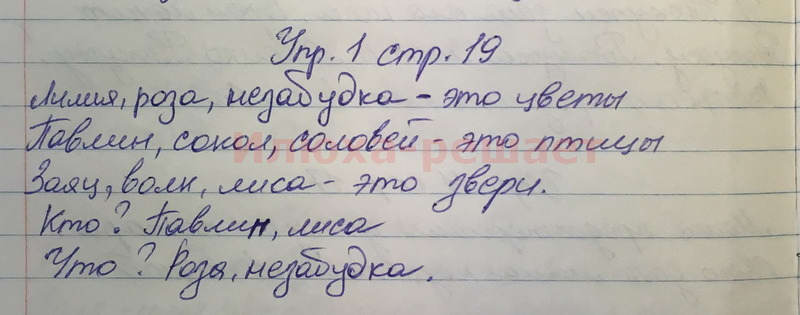 Упр. 1 стр. 19
Лилия, роза, незабудка - это цветы
Павлин, сокол, соловей - это птицы
Илюха-решает
Заяц, волк, лиса - это звери.
Кто? Павлин, лиса
Что? Роза, незабудка.